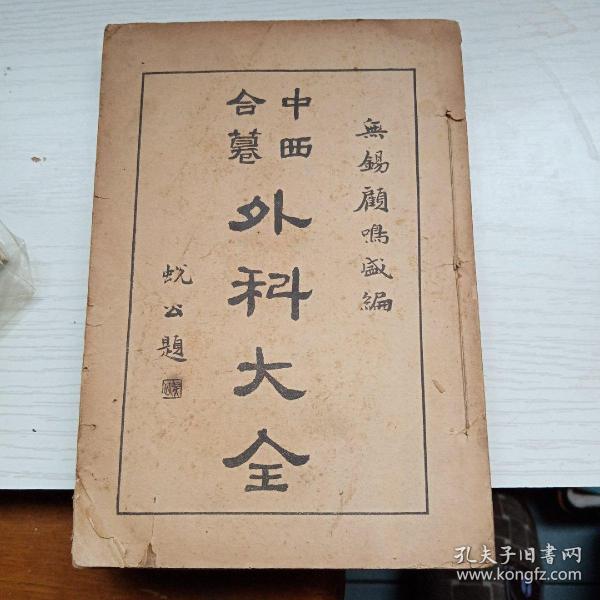 無錫顧鳴盛編
中西
合纂
外科大全
蛻公題
孔夫子旧書网
www.kongfz.com